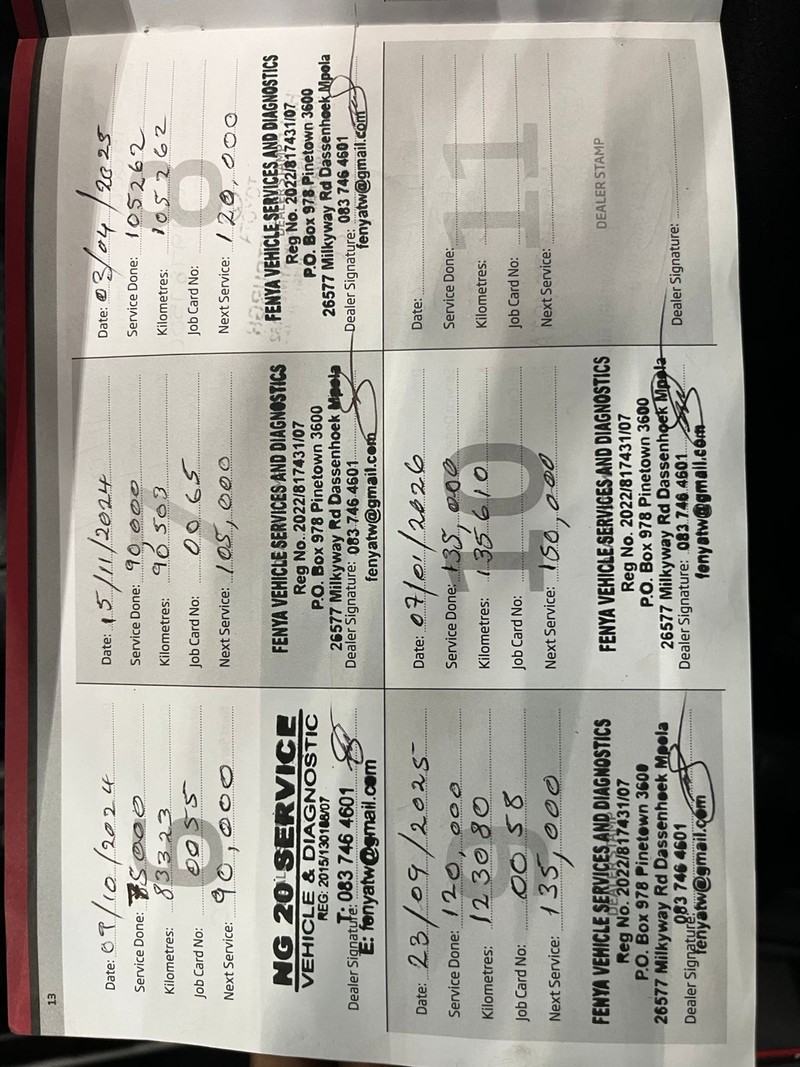 13
Date: 09/10/2024
Service Done: 75000
Kilometres: 83323
Job Card No: 0055
Next Service: 90,000
6
NG 20 SERVICE
VEHICLE & DIAGNOSTIC
REG: 2015/130188/07
T: 083 746 4601
Dealer Signature:
E: fenyatw@gmail.com
Date: 15/11/2024
Service Done: 90,000
Kilometres: 90503
Job Card No: 0065
Next Service: 105,000
7
FENYA VEHICLE SERVICES AND DIAGNOSTICS
Reg No. 2022/817431/07
P.O. Box 978 Pinetown 3600
26577 Milkyway Rd Dassenhoek Mpola
Dealer Signature: 083 746 4601
fenyatw@gmail.com
Date: 03/04/2025
Service Done: 105262
Kilometres: 105262
Job Card No:
Next Service: 120,000
8
FENYA VEHICLE SERVICES AND DIAGNOSTICS
Reg No. 2022/817431/07
P.O. Box 978 Pinetown 3600
26577 Milkyway Rd Dassenhoek Mpola
083 746 4601
Dealer Signature:
fenyatw@gmail.com
Date: 23/09/2025
Service Done: 120,000
Kilometres: 123080
Job Card No: 0058
Next Service: 135,000
9
FENYA VEHICLE SERVICES AND DIAGNOSTICS
DEALER STAMP
Reg No. 2022/817431/07
P.O. Box 978 Pinetown 3600
26577 Milkyway Rd Dassenhoek Mpola
083 746 4601
Dealer Signature:
fenyatw@gmail.com
Date: 07/01/2026
Service Done: 135,000
Kilometres: 135610
Job Card No:
Next Service: 150,000
10
FENYA VEHICLE SERVICES AND DIAGNOSTICS
Reg No. 2022/817431/07
P.O. Box 978 Pinetown 3600
26577 Milkyway Rd Dassenhoek Mpola
Dealer Signature: 083 746 4601
fenyatw@gmail.com
Date:
Service Done:
Kilometres:
Job Card No:
Next Service:
11
DEALER STAMP
Dealer Signature: